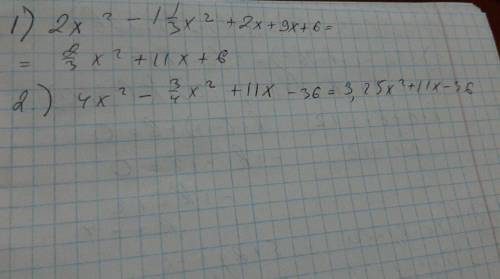 1) 2x² - 1 1/3 x² + 2x + 9x + 6 =
= 2/3 x² + 11x + 6
2.) 4x² - 3/4 x² + 11x - 36 = 3,25x² + 11x - 36